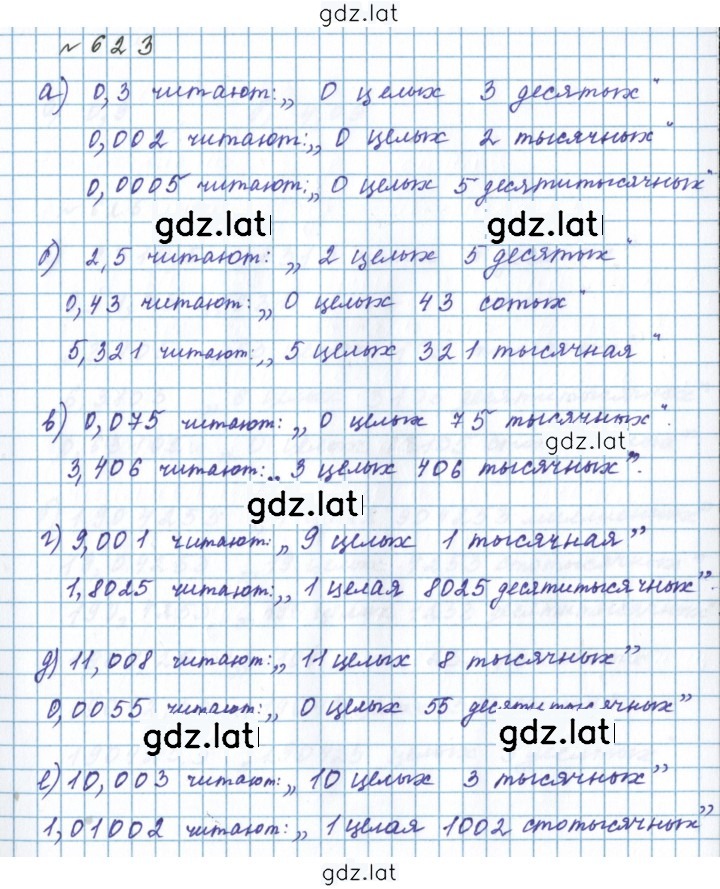 gdz.lat
№ 623
а) 0,3 читают: „ 0 целых 3 десятых "
0,002 читают: „ 0 целых 2 тысячных "
0,0005 читают: „ 0 целых 5 десятитысячных "
gdz.lat gdz.lat
б) 2,5 читают: „ 2 целых 5 десятых "
0,43 читают: „ 0 целых 43 сотых "
5,321 читают: „ 5 целых 321 тысячная "
в) 0,075 читают: „ 0 целых 75 тысячных ".
gdz.lat
3,406 читают: „ 3 целых 406 тысячных ".
gdz.lat
г) 9,001 читают: „ 9 целых 1 тысячная "
1,8025 читают: „ 1 целая 8025 десятитысячных ".
д) 11,008 читают: „ 11 целых 8 тысячных "
0,0055 читают: „ 0 целых 55 десятитысячных "
gdz.lat gdz.lat
е) 10,003 читают: „ 10 целых 3 тысячных "
1,01002 читают: „ 1 целая 1002 стотысячных "
gdz.lat